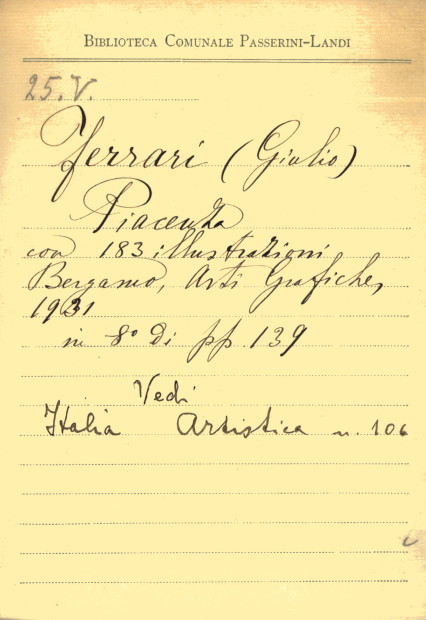 BIBLIOTECA COMUNALE PASSERINI-LANDI
25.V.
Ferrari (Giulio)
Piacenza
con 183 illustrazioni
Bergamo, Arti Grafiche,
1931
in 8° di pp. 139
Vedi
Italia Artistica n. 106